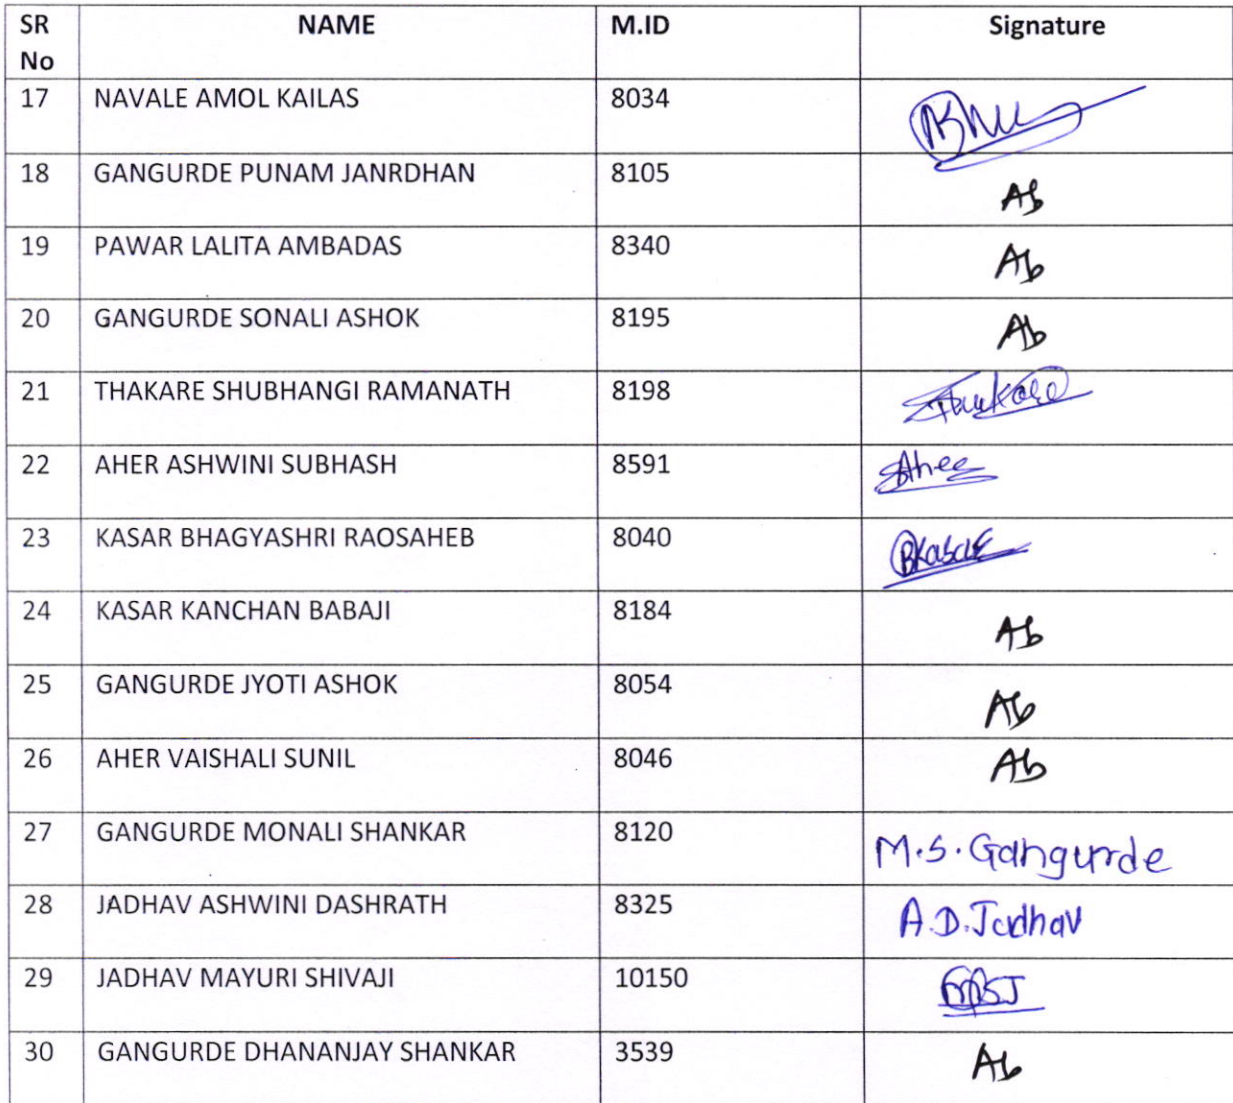 SR No NAME M.ID Signature
17 NAVALE AMOL KAILAS 8034
18 GANGURDE PUNAM JANRDHAN 8105 Ab
19 PAWAR LALITA AMBADAS 8340 Ab
20 GANGURDE SONALI ASHOK 8195 Ab
21 THAKARE SHUBHANGI RAMANATH 8198
22 AHER ASHWINI SUBHASH 8591
23 KASAR BHAGYASHRI RAOSAHEB 8040
24 KASAR KANCHAN BABAJI 8184 Ab
25 GANGURDE JYOTI ASHOK 8054 Ab
26 AHER VAISHALI SUNIL 8046 Ab
27 GANGURDE MONALI SHANKAR 8120 M.S.Gangurde
28 JADHAV ASHWINI DASHRATH 8325 A.D.Jadhav
29 JADHAV MAYURI SHIVAJI 10150
30 GANGURDE DHANANJAY SHANKAR 3539 Ab